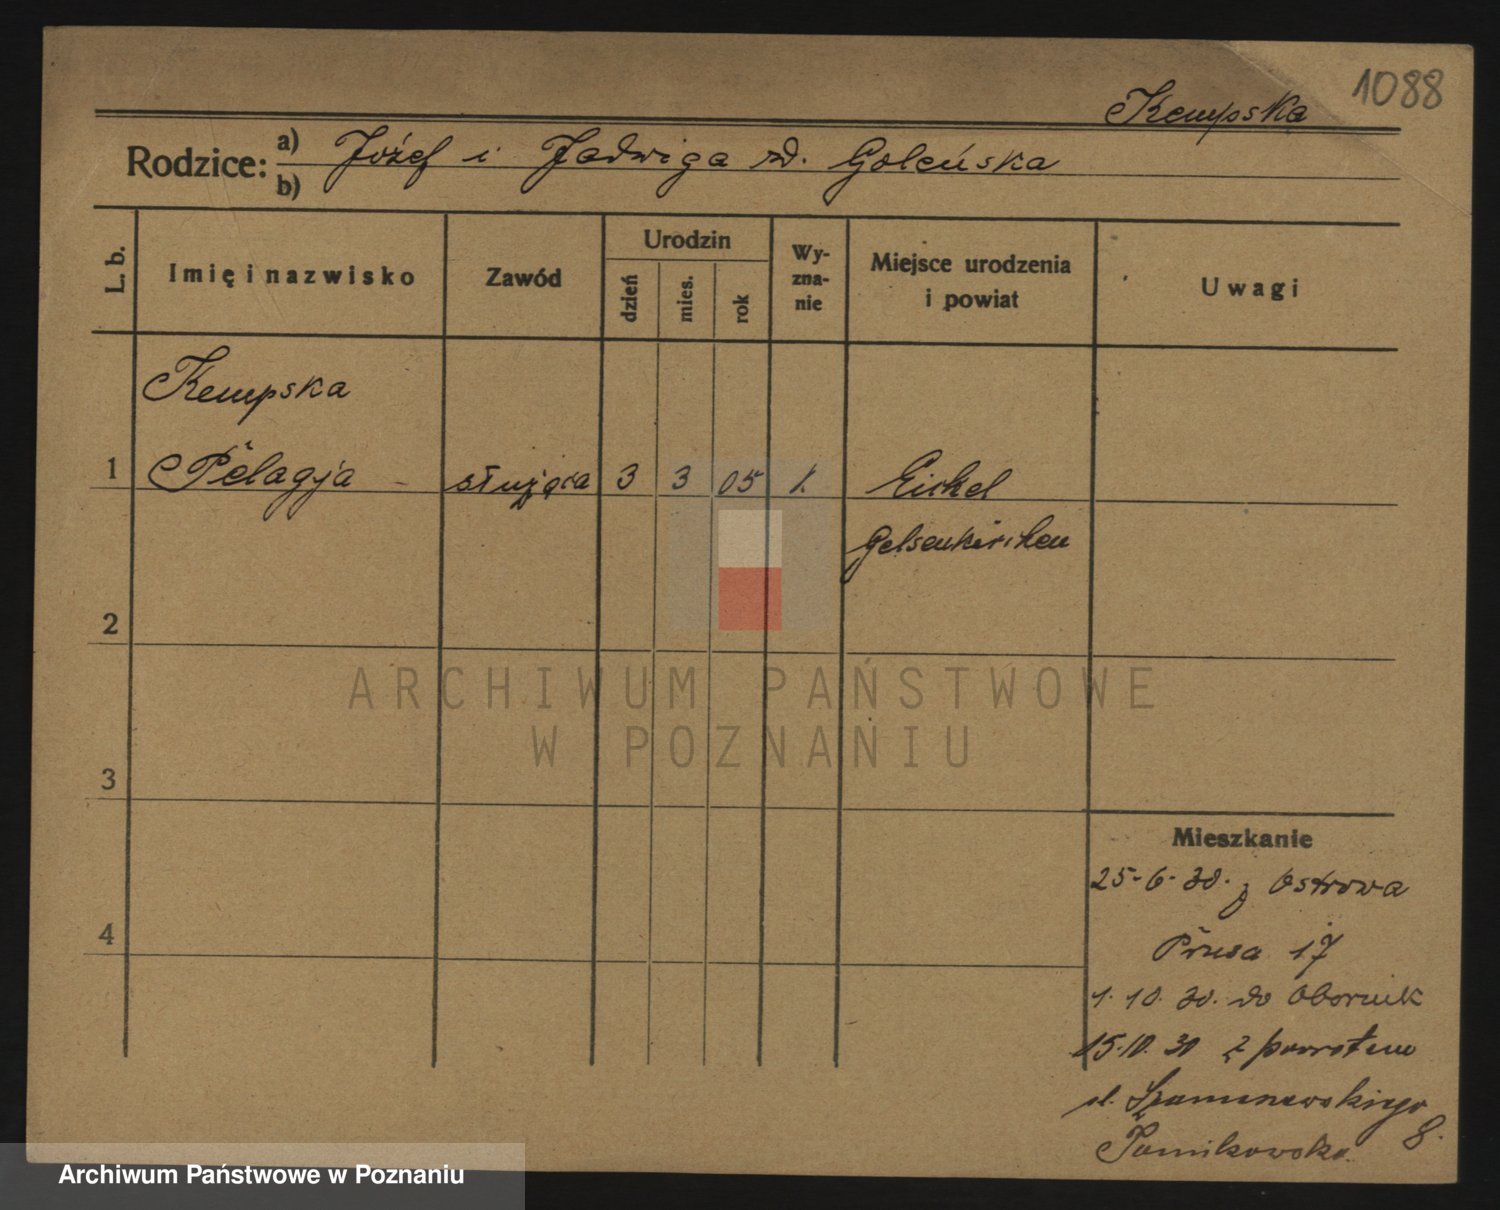 1088
Kempska
Rodzice: a) Józef i Jadwiga zd. Goleńska
b)
L. b.
Imię i nazwisko
Zawód
Urodzin
dzień
mies.
rok
Wy-
zna-
nie
Miejsce urodzenia
i powiat
Uwagi
Kempska
1 Pelagja służąca 3 3 05 k. Eickel
Gelsenkirchen
2
3
4
Mieszkanie
25-6-30. z Ostrowa
Prusa 17
1. 10. 30. do Obornik
15.10. 30 z powrotem
pl. 8.
ARCHIWUM PAŃSTWOWE
W POZNANIU
Archiwum Państwowe w Poznaniu